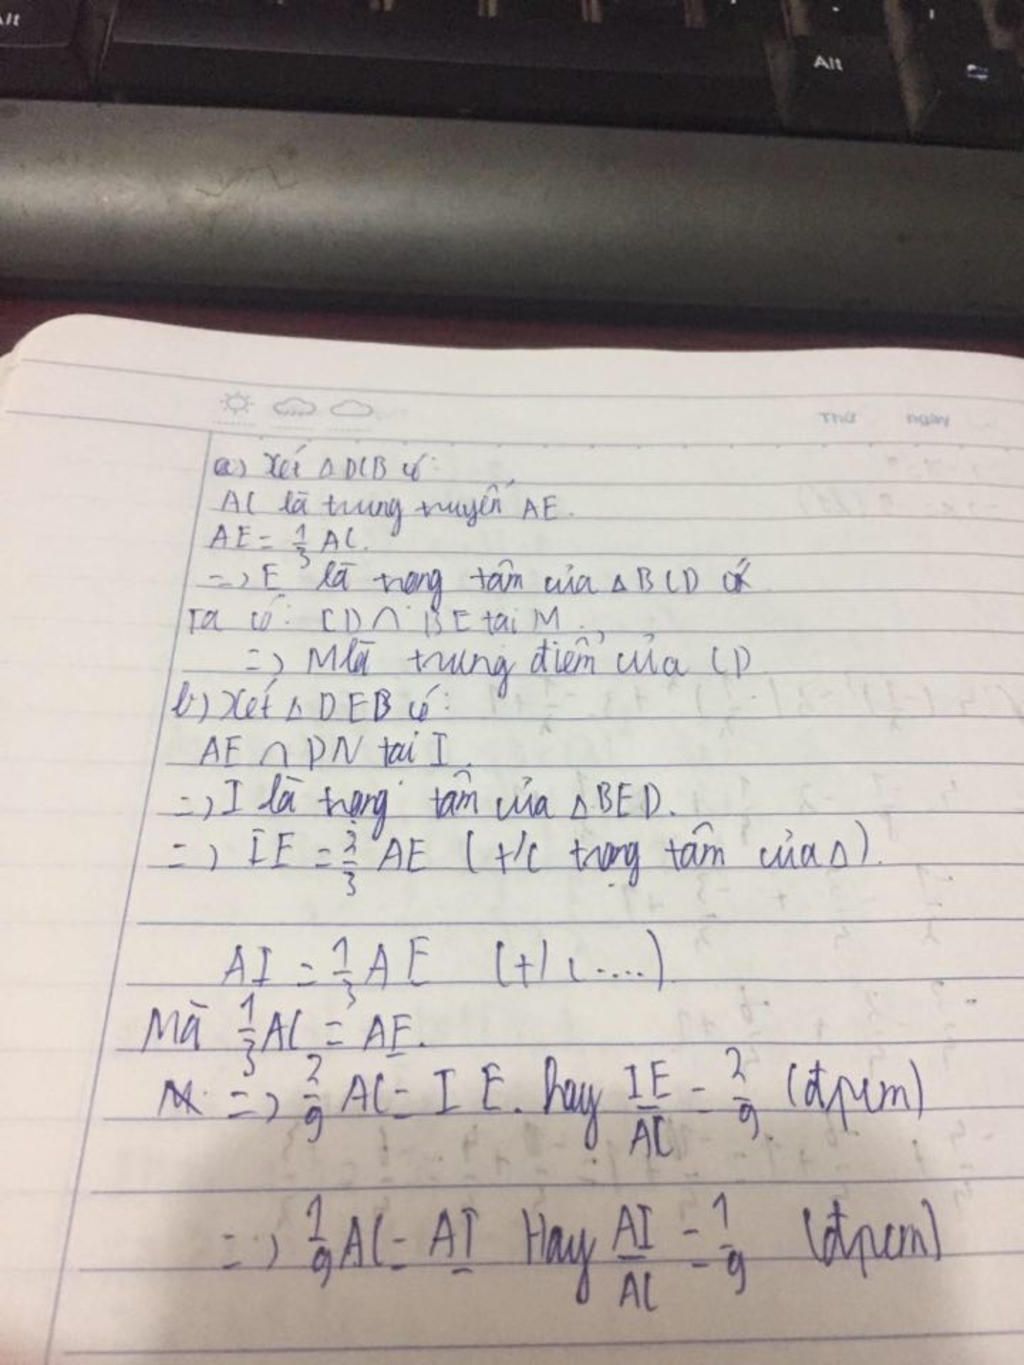 Alt
Alt
Thứ ngày
a) Xét Δ DCB có:
AC là trung truyến AE.
AE = 1/3 AC.
=> E là trọng tâm của Δ BCD
Ta có: CD ∩ BE tại M.
=> M là trung điểm của CD
b) Xét Δ DEB có:
AE ∩ DN tại I.
=> I là trọng tâm của Δ BED.
=> IE = 2/3 AE (t/c trọng tâm của Δ).
AI = 1/3 AE (t/c ....)
Mà 1/3 AC = AE.
=> 2/9 AC = IE. hay IE/AC = 2/9 (đpcm)
=> 1/9 AC = AI Hay AI/AC = 1/9 (đpcm)